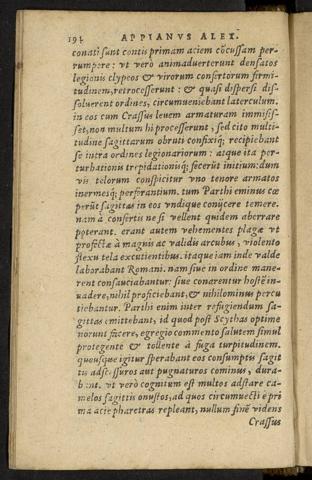 194 APPIANVS ALEX.
conati sunt contis primam aciem cōcussam per-
rumpere: vt verò animaduerterunt densatos
legionis clypeos & virorum consertorum firmi-
tudinem, retrocesserunt: & quasi dispersi dis-
soluerent ordines, circumueniebant laterculum.
in eos cum Crassus leuem armaturam immisis-
set, non multum hi processerunt, sed cito multi-
tudine sagittarum obruti confixiq; recipiebant
se intra ordines legionariorum: atque ita per-
turbationis trepidationisq; fecerūt initium: dum
vis telorum conspicitur vno tenore armatos
inermesq; perforantium. tum Parthi eminus cœ
perūt sagittas in eos vndique conijcere temere.
nam à confertis ne si vellent quidem aberrare
poterant. erant autem vehementes plagæ vt
profectæ à magnis ac validis arcubus, violento
flexu tela excutientibus. itaque iam inde valde
laborabant Romani. nam siue in ordine mane-
rent consauciabantur: siue conarentur hostē in-
uadere, nihil proficiebant, & nihilominus percu
tiebantur. Parthi enim inter refugiendum sa-
gittas emittebant, id quod post Scythas optime
norunt facere, egregio commento salutem simul
protegente & tollente à fuga turpitudinem.
quousque igitur sperabant eos consumptis sagit
tis adscessuros aut pugnaturos cominus, dura-
bant. vt verò cognitum est multos adstare ca-
melos sagittis onustos, ad quos circumuecti è pri
ma acie pharetras repleant, nullum finē videns
Crassus